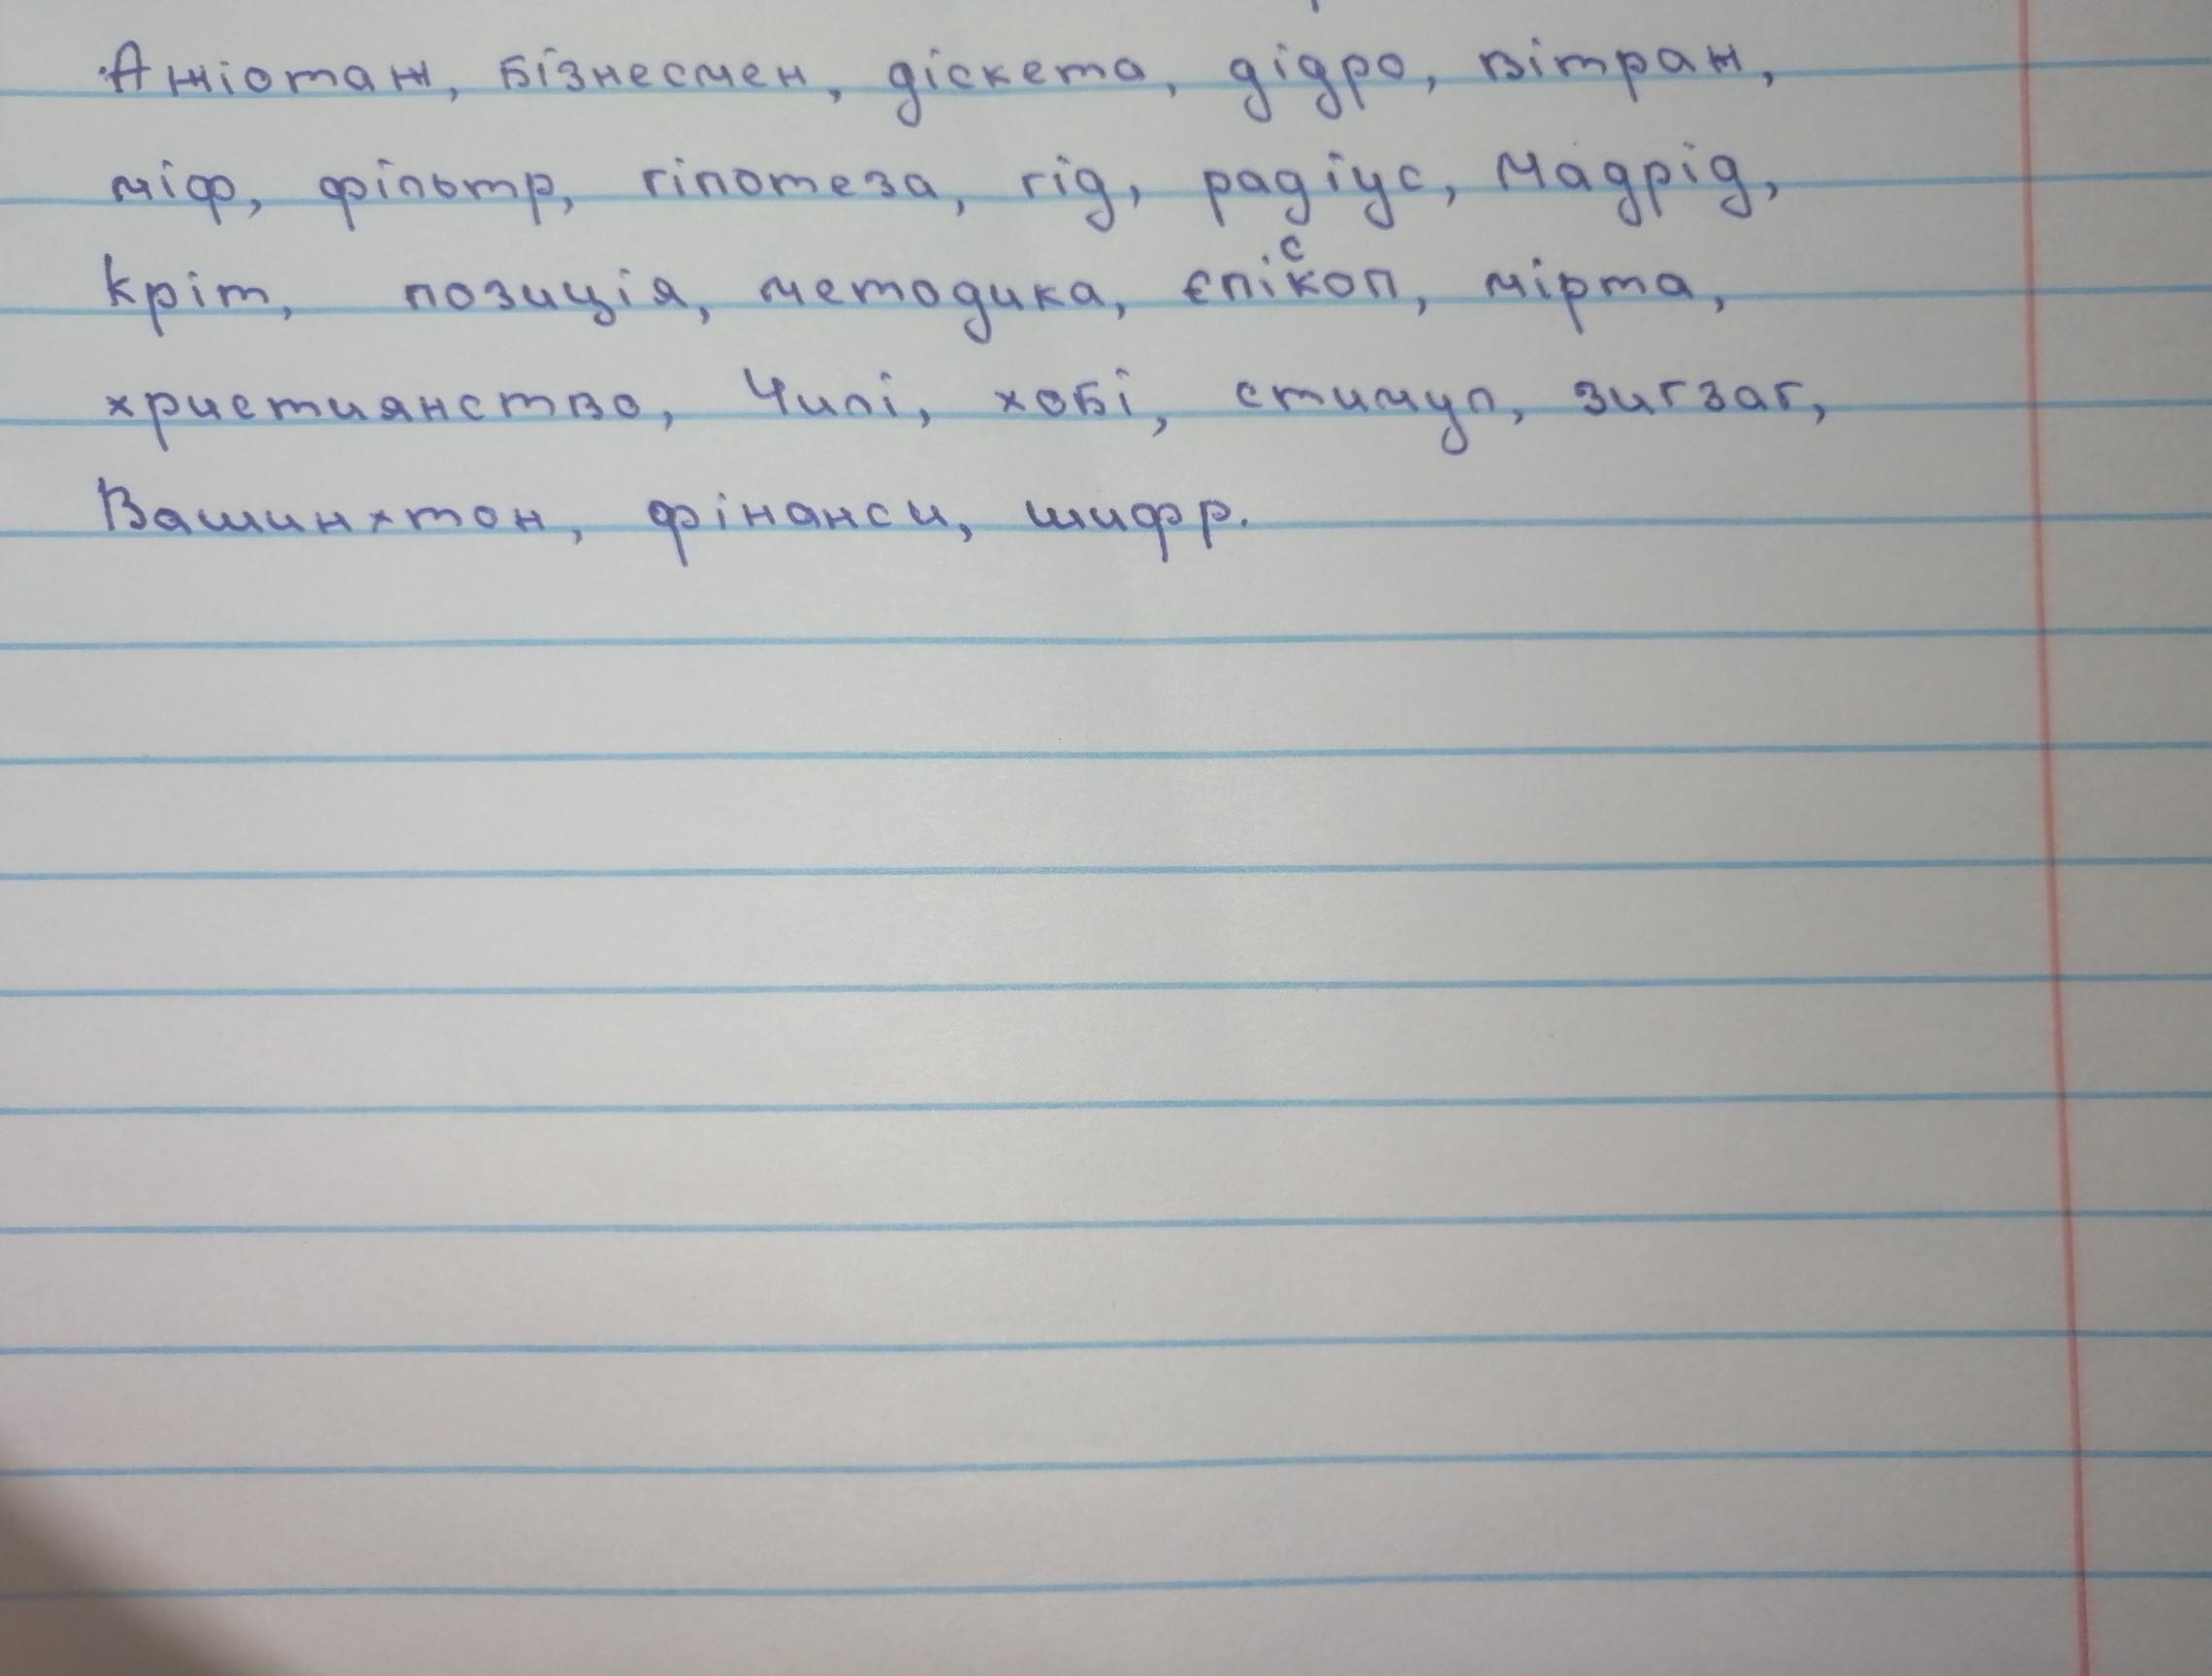 Ажіотаж, бізнесмен, діскета, дідро, вітраж,
міф, фільтр, гіпотеза, гід, радіус, Мадрід,
Кріт, позиція, методика, єпіскоп, мірта,
християнство, Чилі, хобі, стимул, зигзаг,
Вашинхтон, фінанси, шифр.